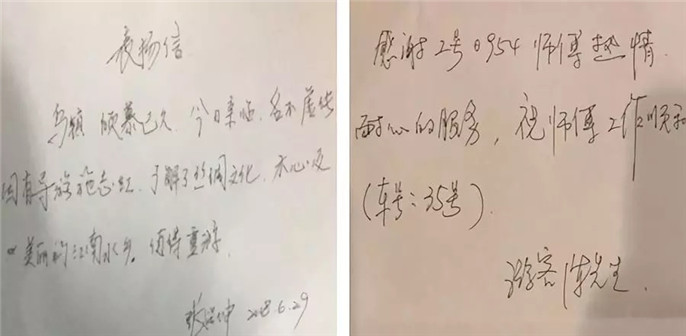 表扬信
乌镇 倾慕已久 今日亲临，名不虚传
因有导游施志红，了解了丝绸文化，水心及
美丽的江南水乡。值得重游
2018.6.29
感谢2号0954师傅热情
耐心的服务，祝师傅工作顺利
(车号：35号)
游客陈先生